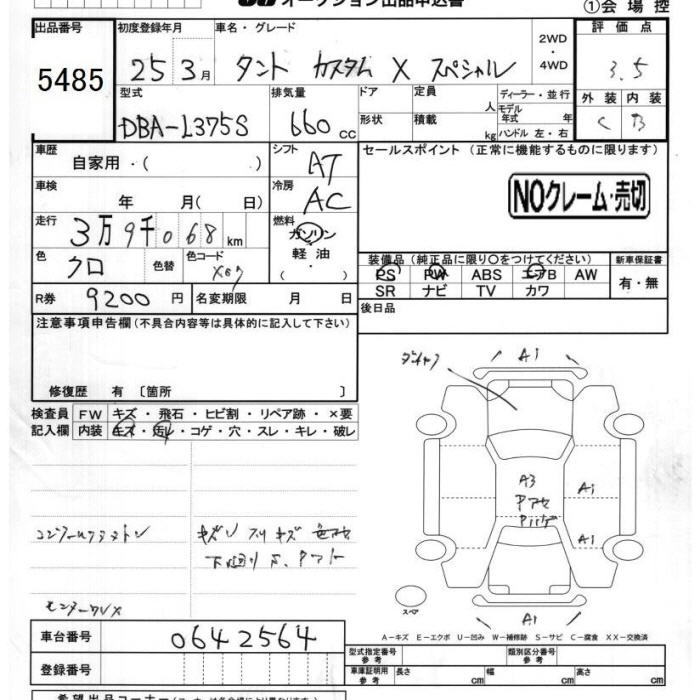 オークション出品申込書
①会場控
出品番号 初度登録年月 車名・グレード 2WD・4WD 評価点
5485 25 3月 タント カスタム X スペシャル 3.5
型式 排気量 ドア 定員 人 ディーラー・並行 外装 内装
DBA-L375S 660cc 形状 積載 kg モデル年式 年 ハンドル 左・右 C B
車歴 自家用・( ) シフト AT セールスポイント (正常に機能するものに限ります)
車検 年 月( 日) 冷房 AC NOクレーム・売切
走行 3万9千068km 燃料 ガソリン・軽油・( )
色 クロ 色替 色コード X07 装備品 (純正品に限り○をつけてください) 新車保証書
PS PW ABS エアB AW 有・無
SR ナビ TV カワ
R券 9200円 名変期限 月 日 後日品
注意事項申告欄 (不具合内容等は具体的に記入して下さい)
修復歴 有〔箇所 〕
検査員 FW キズ・飛石・ヒビ割・リペア跡・×要
記入欄 内装 キズ・汚レ・コゲ・穴・スレ・キレ・破レ
A1
A3
A1
A1
A1
スペア
A-キズ E-エクボ U-凹み W-補修跡 S-サビ C-腐食 XX-交換済
車台番号 0642564
登録番号
型式指定番号 参考 類別区分番号 参考
車庫証明用 参考 長さ cm 幅 cm 高さ cm